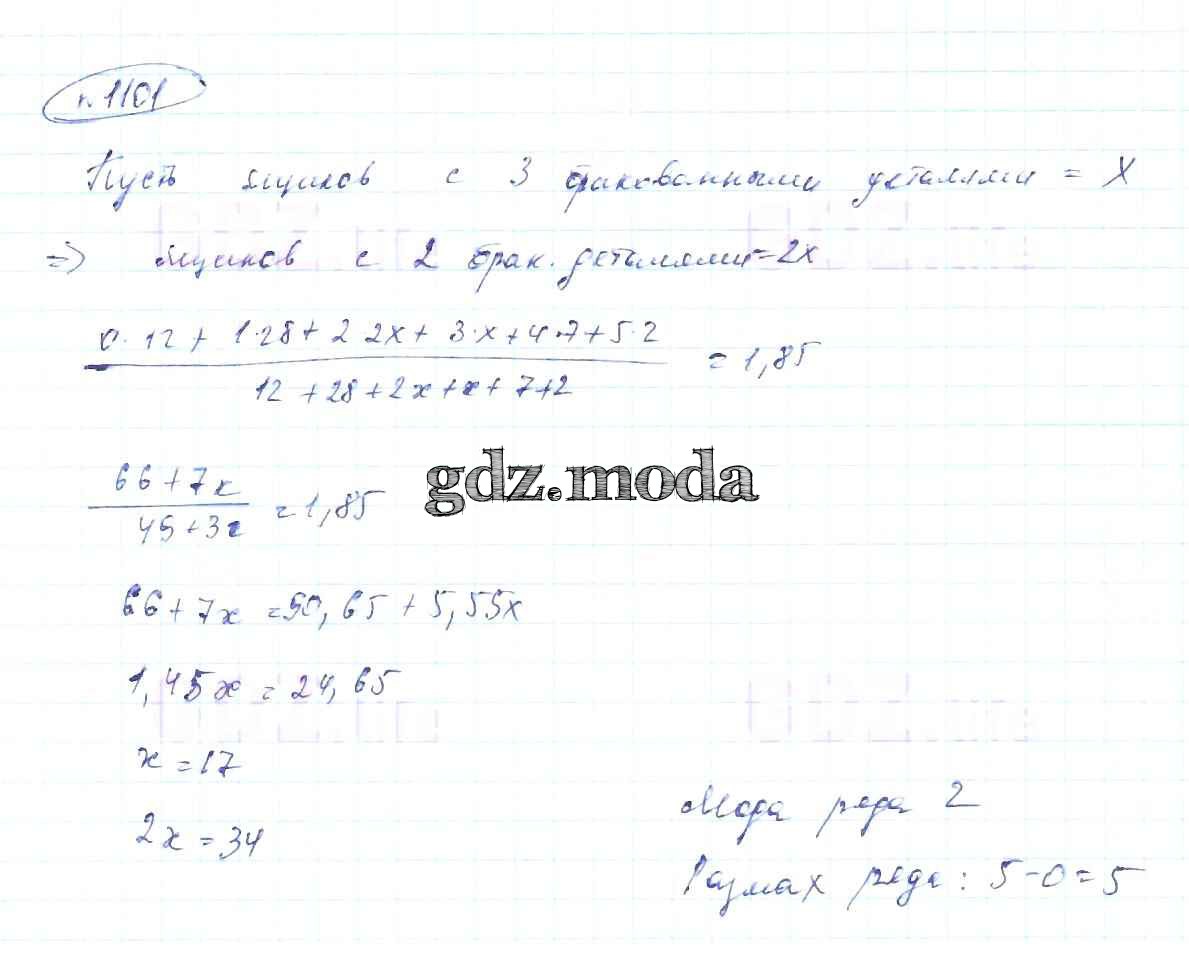 п. 1101
Пусть ящиков с 3 бракованными деталями = X
=> ящиков с 2 брак. деталями = 2x
0·12 + 1·28 + 2·2x + 3·x + 4·7 + 5·2
12 + 28 + 2x + x + 7 + 2
= 1,85
gdz.moda
66 + 7x
49 + 3x
= 1,85
66 + 7x = 90,65 + 5,55x
1,45x = 24,65
x = 17
2x = 34
Мода ряда 2
Размах ряда: 5 - 0 = 5